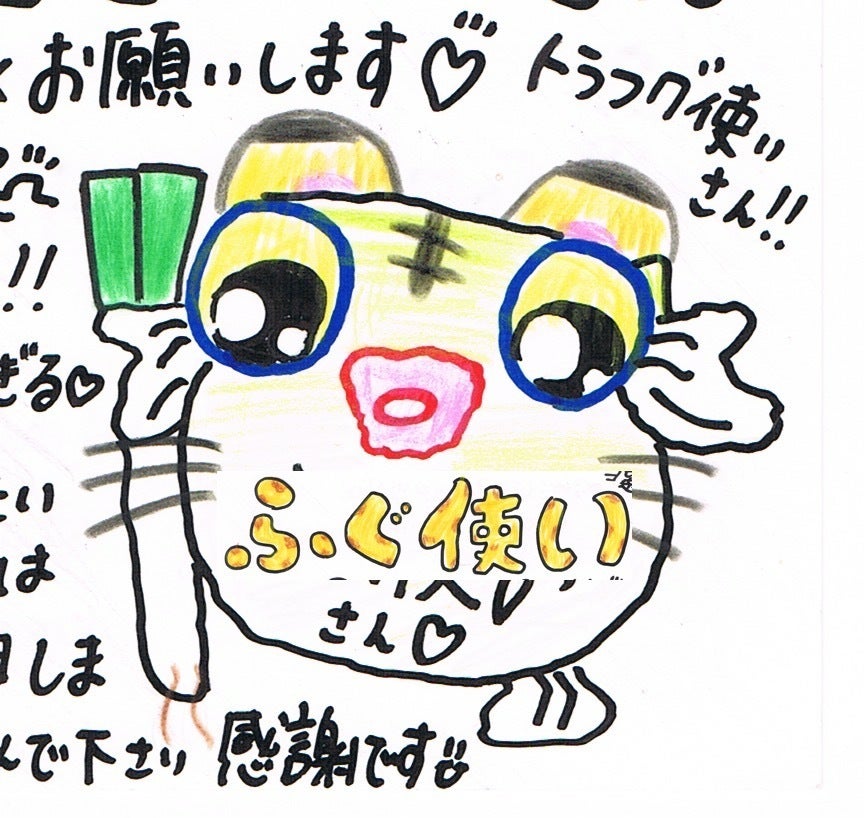 お願いします♡
トラフグ使い
さん!!
!!
ぎる♡
たい
は
しま
んで下さい 感謝です
ふぐ使い
さん♡